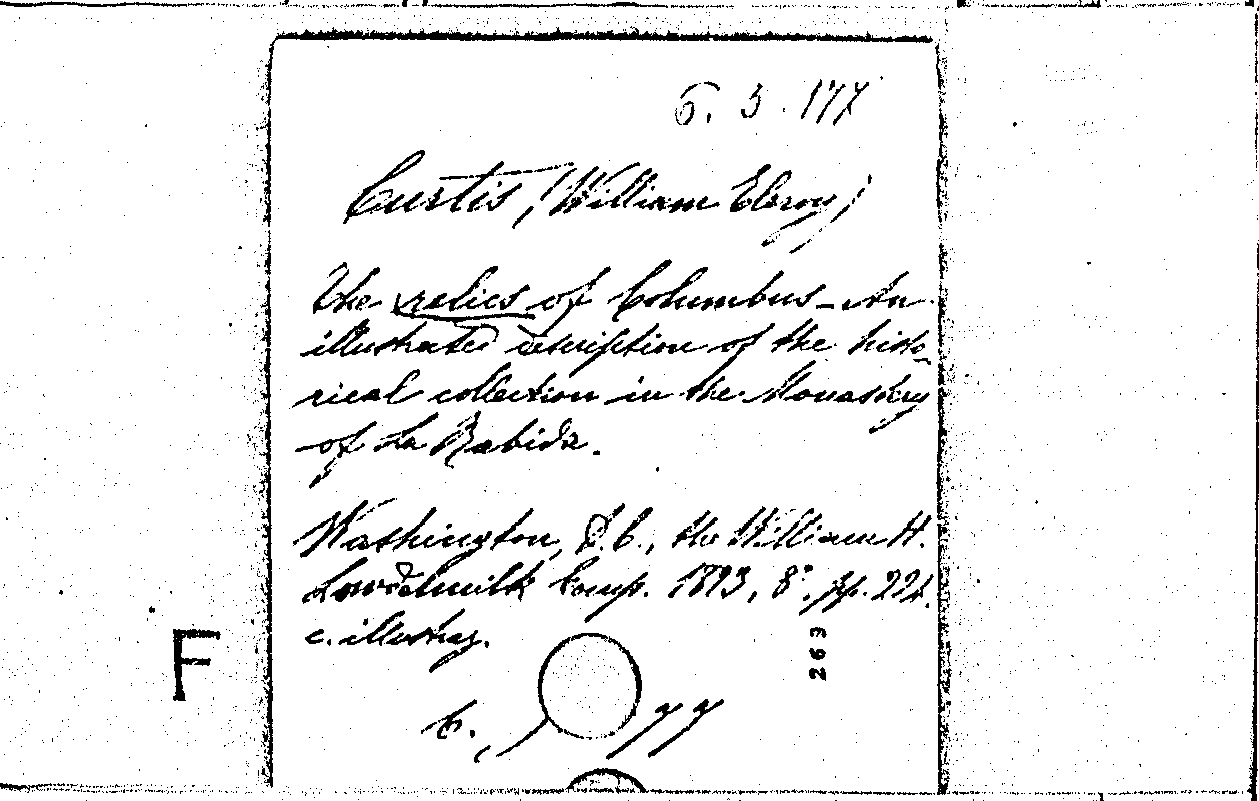 6. 3. 177
Curtis, (William Eleroy)
The relics of Columbus - An
illustrated description of the histo-
rical collection in the Monastery
of La Rabida.
Washington, D.C., the William H.
Lowdelmilk Comp. 1893, 8°, pp. 224.
c. illustraz.
263
F